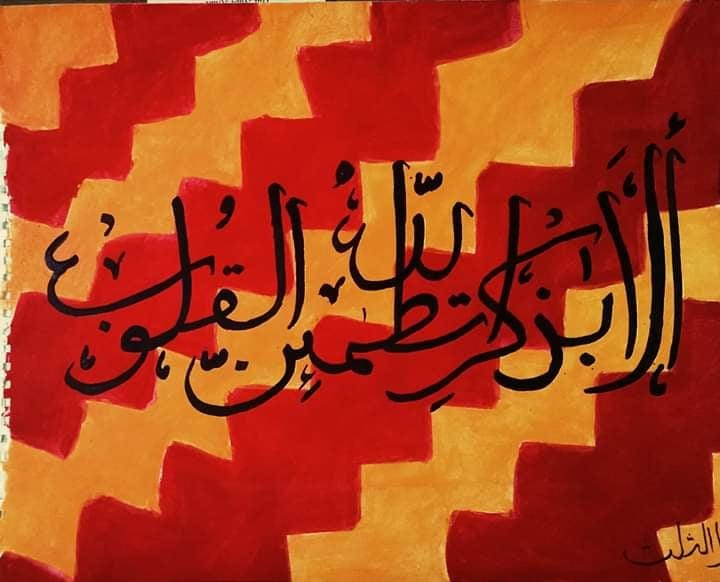 ألا بذكر الله تطمئن القلوب
الثلث